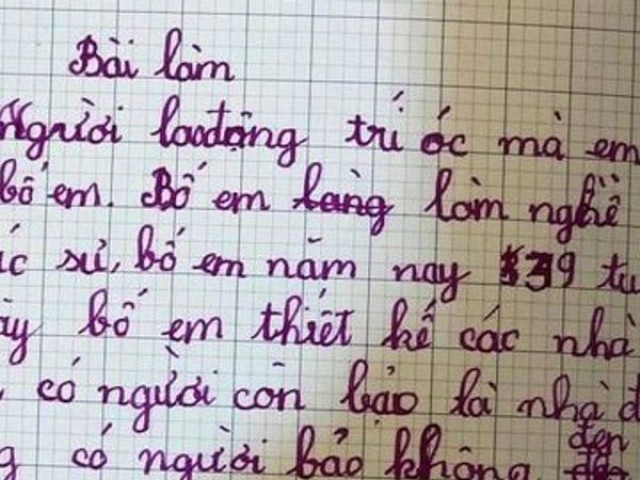 Bài làm
Người laođộng trí óc mà em
bố em. Bố em làng làm nghề
ic sư, bố em năm nay 39 tu
ày bố em thiết kế các nhà
có người còn bảo là nhà đ
g có người bảo không đẹp